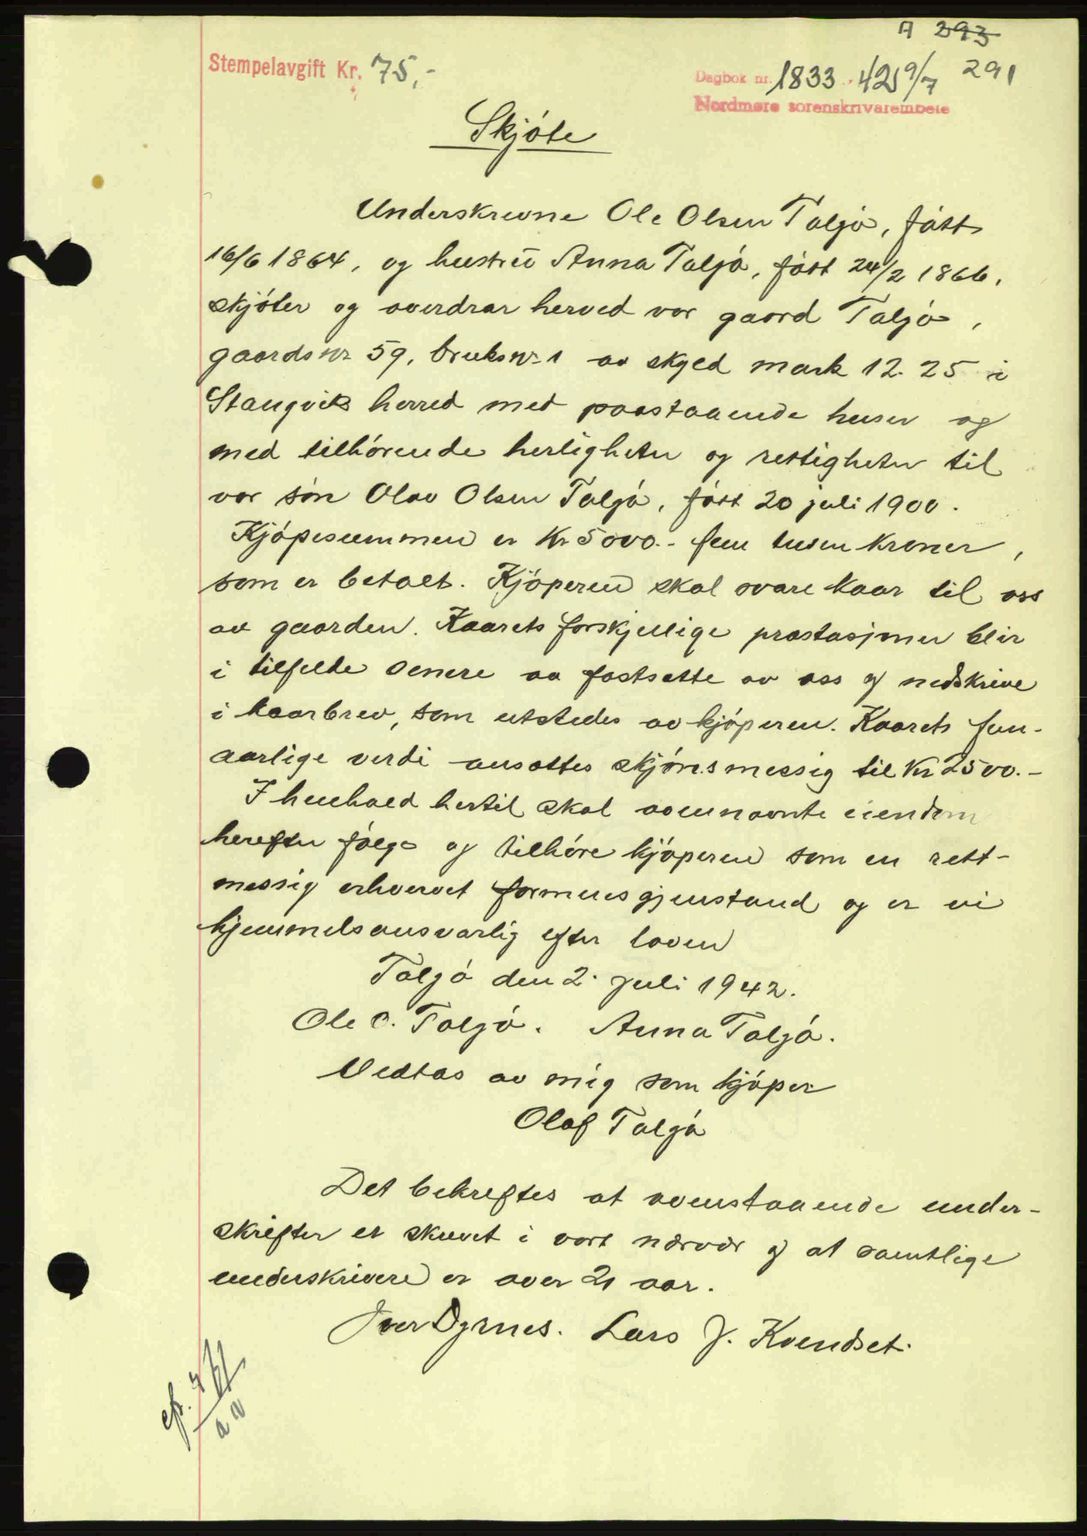 A 293
291
Stempelavgift Kr. 75,-
Dagbok nr. 1833 . 42 9/7
Nordmøre sorenskrivarembete
Skjóte
Underskrevne Ole Olsen Taljó, fått
16/6 1864, og hustrū Anna Taljó, fått 24/2 1866,
skjóter og overdrar herved vor gaard Taljó,
gaardsnr 59, bruksnr 1 av skyld mark 12.25 i
Stangvik herred med paastaaende huser og
med tilhórende herligheter og rettigheter til
vor són Olav Olsen Taljó, fótt 20 juli 1900.
Kjópesummen er Kr 5000.- fem tusen kroner,
som er betalt. Kjóperen skal svare kaar til oss
av gaarden. Kaarets forskjellige prestasjoner blir
i tilfelde senere aa fastsette av oss og nedskrive
i kaarbrev, som utstedes av kjóperen. Kaarets fem-
aarlige verdi ansettes skjónsmessig til Kr 2500.-
I henhold hertil skal ovennevnte eiendom
herefter fólge og tilhóre kjóperen som en rett-
messig erhvervet formuesgjenstand og er vi
hjemmelsansvarlig efter loven
Taljó den 2. juli 1942.
Ole O. Taljó. Anna Taljó.
Vedtas av mig som kjóper
Olaf Taljó
Det bekreftes at ovenstaaende under-
skrifter er skrevet i vort nærvær og at samtlige
underskrivere er over 21 aar.
Iver Dyrnes. Lars J. Kvendset.